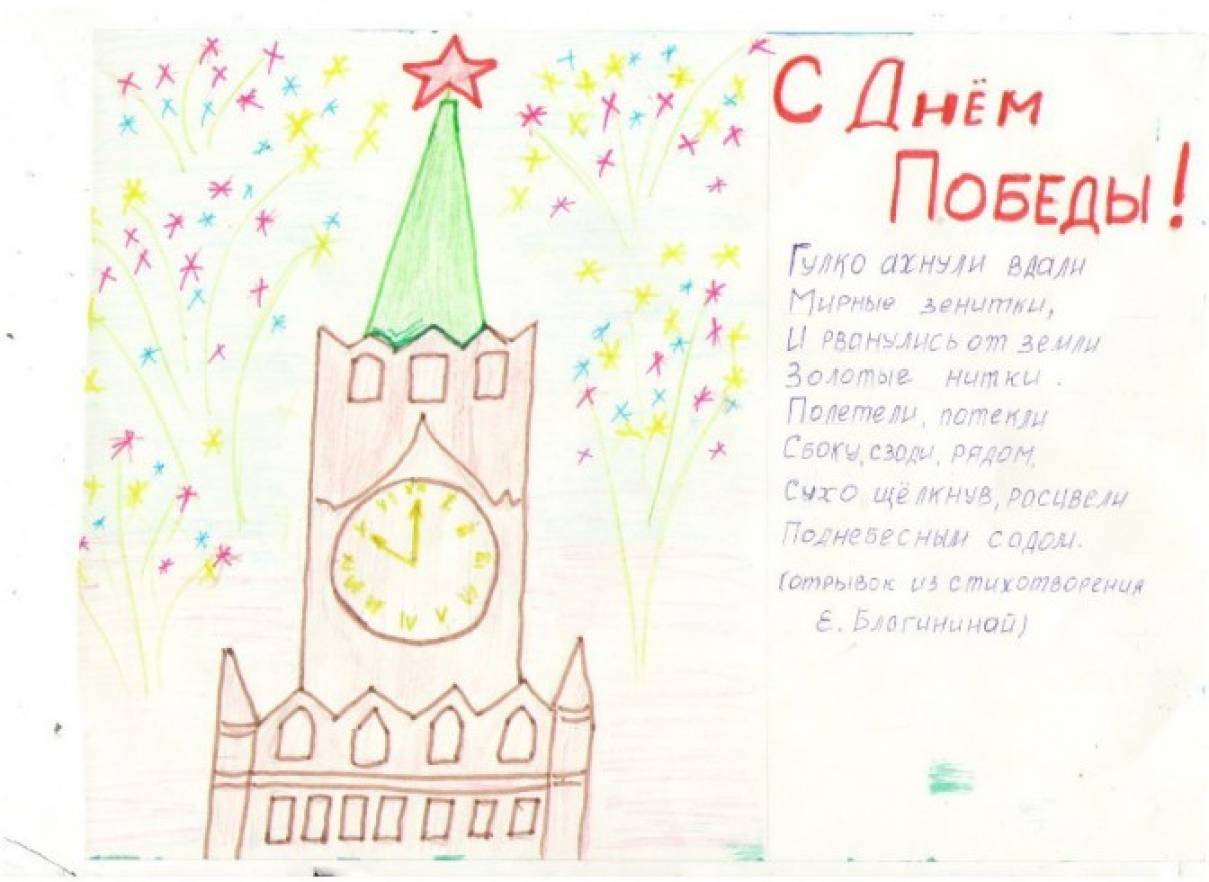 С Днём
Победы!
Гулко ахнули вдали
Мирные зенитки,
И рванулись от земли
Золотые нитки.
Полетели, потекли
Сбоку, сзади, рядом,
Сухо щёлкнув, расцвели
Поднебесным садом.
(отрывок из стихотворения
Е. Благининой)
XII
I
II
III
V
VI